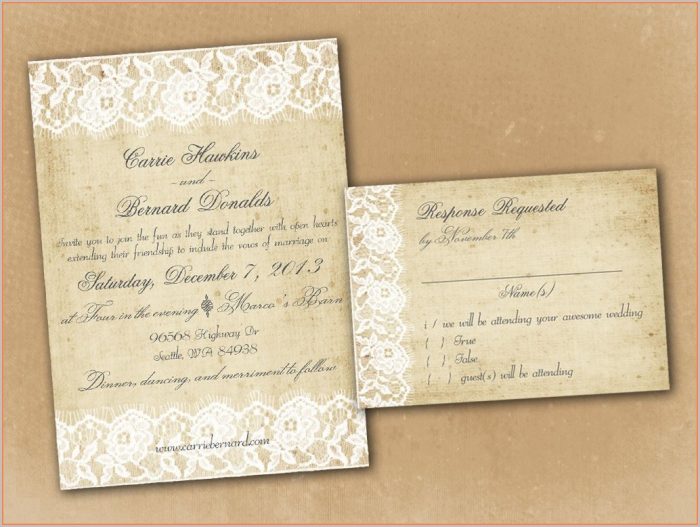 Carrie Hawkins
and
Bernard Donalds
invite you to join the fun as they stand together with open hearts
extending their friendship to include the vows of marriage on
Saturday, December 7, 2013
at Four in the evening Marco's Barn
96568 Highway Dr
Seattle, WA 84938
Dinner, dancing, and merriment to follow
www.carriebernard.com
Response Requested
by November 7th
Name(s)
i / we will be attending your awesome wedding
( ) True
( ) False
( ) guest(s) will be attending